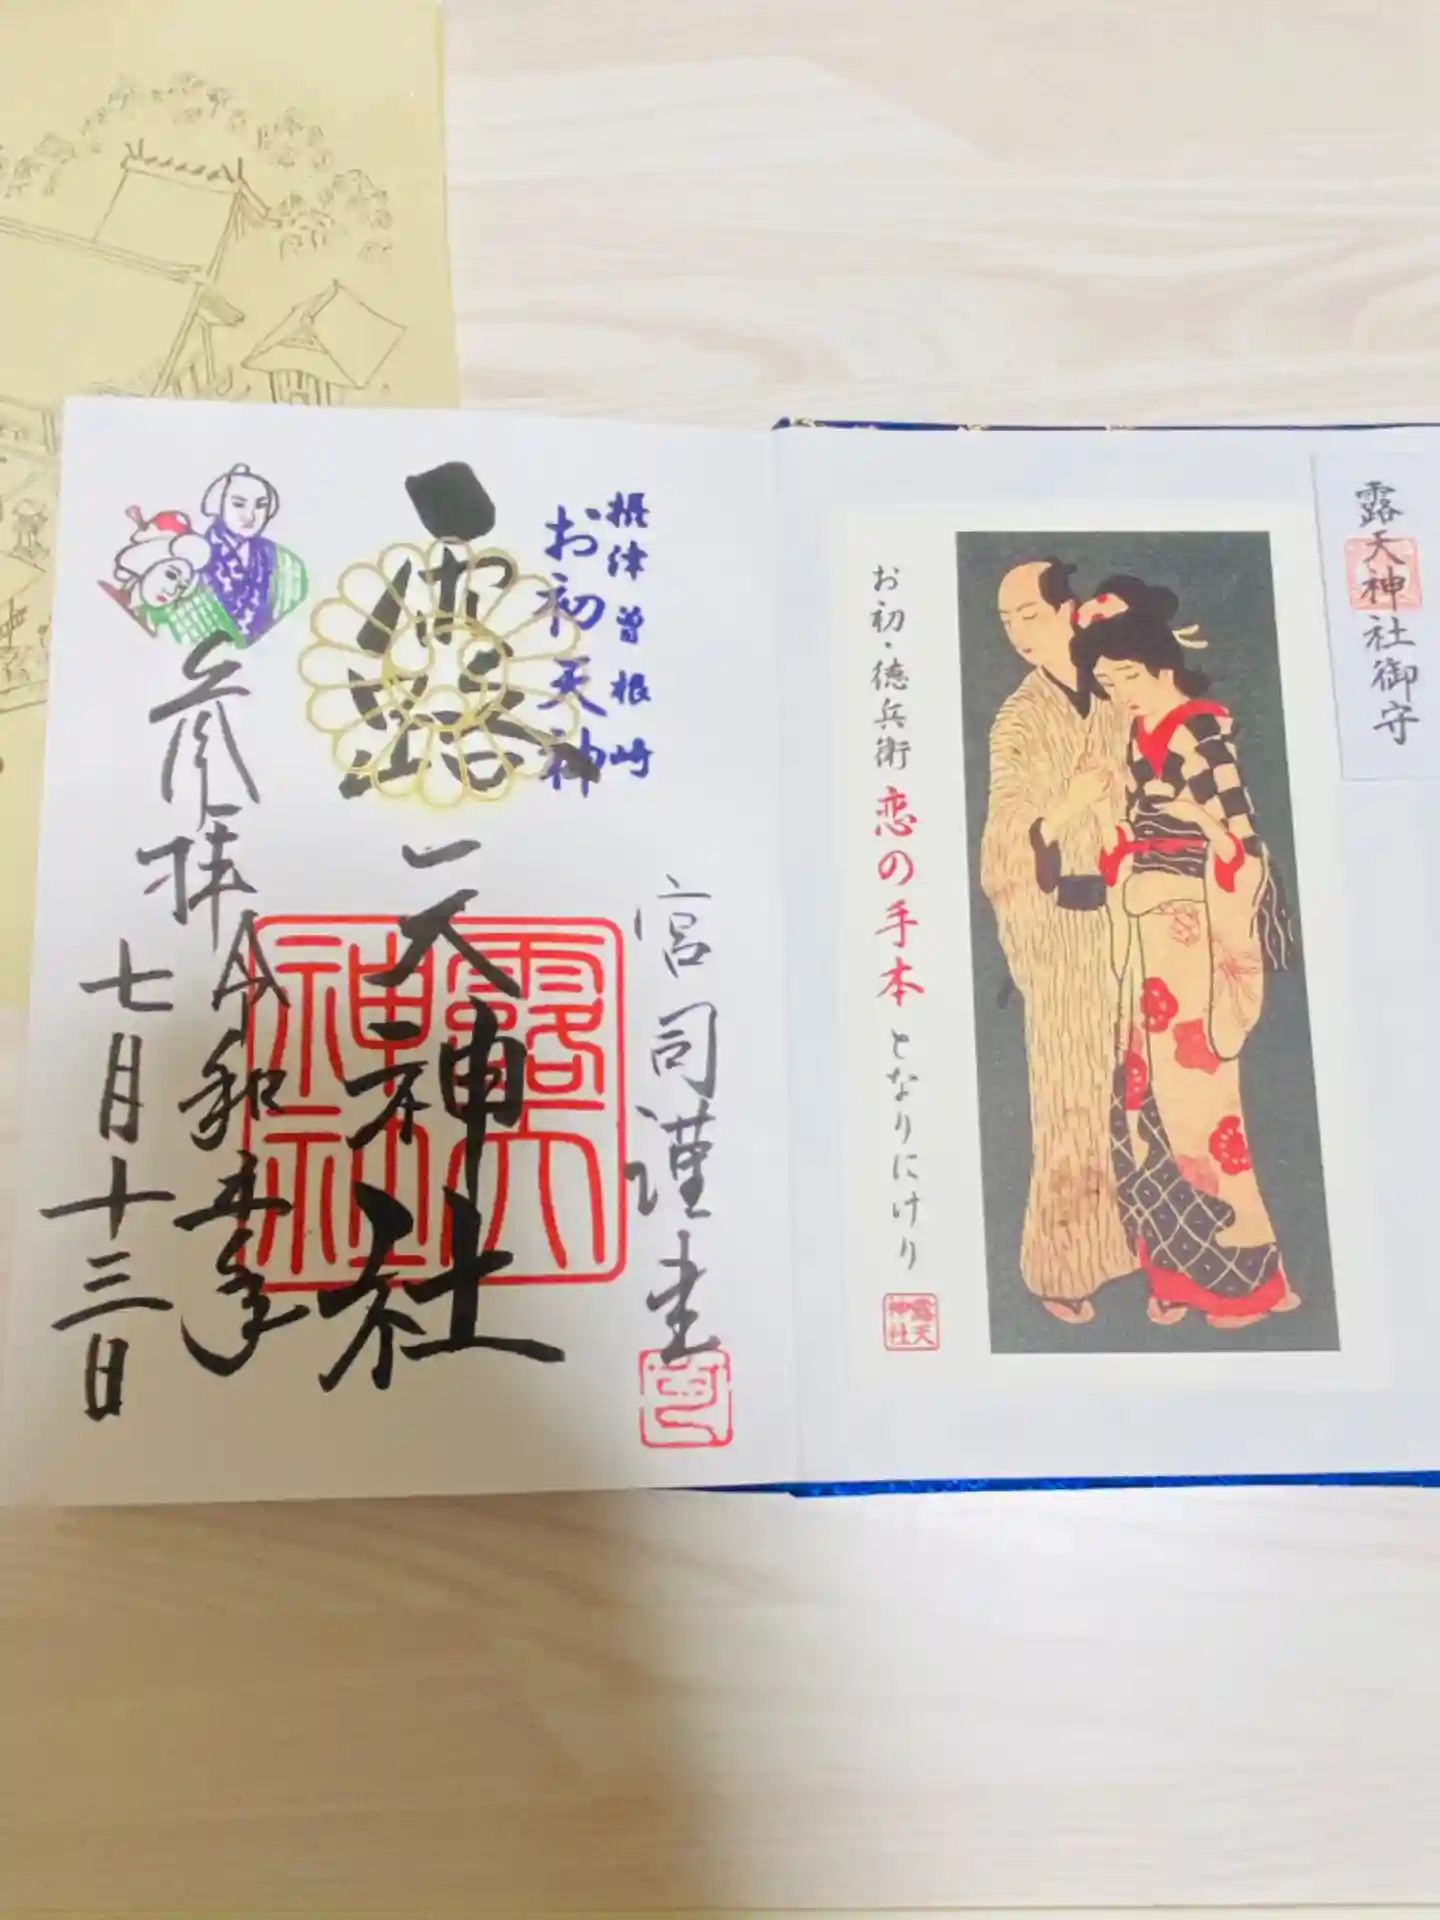 露天神社御守
お初・徳兵衛 恋の手本 となりにけり
露天神社
摂津曽根崎
お初天神
宮司謹書
露天神社
露天神社
参拝
令和五年
七月十三日